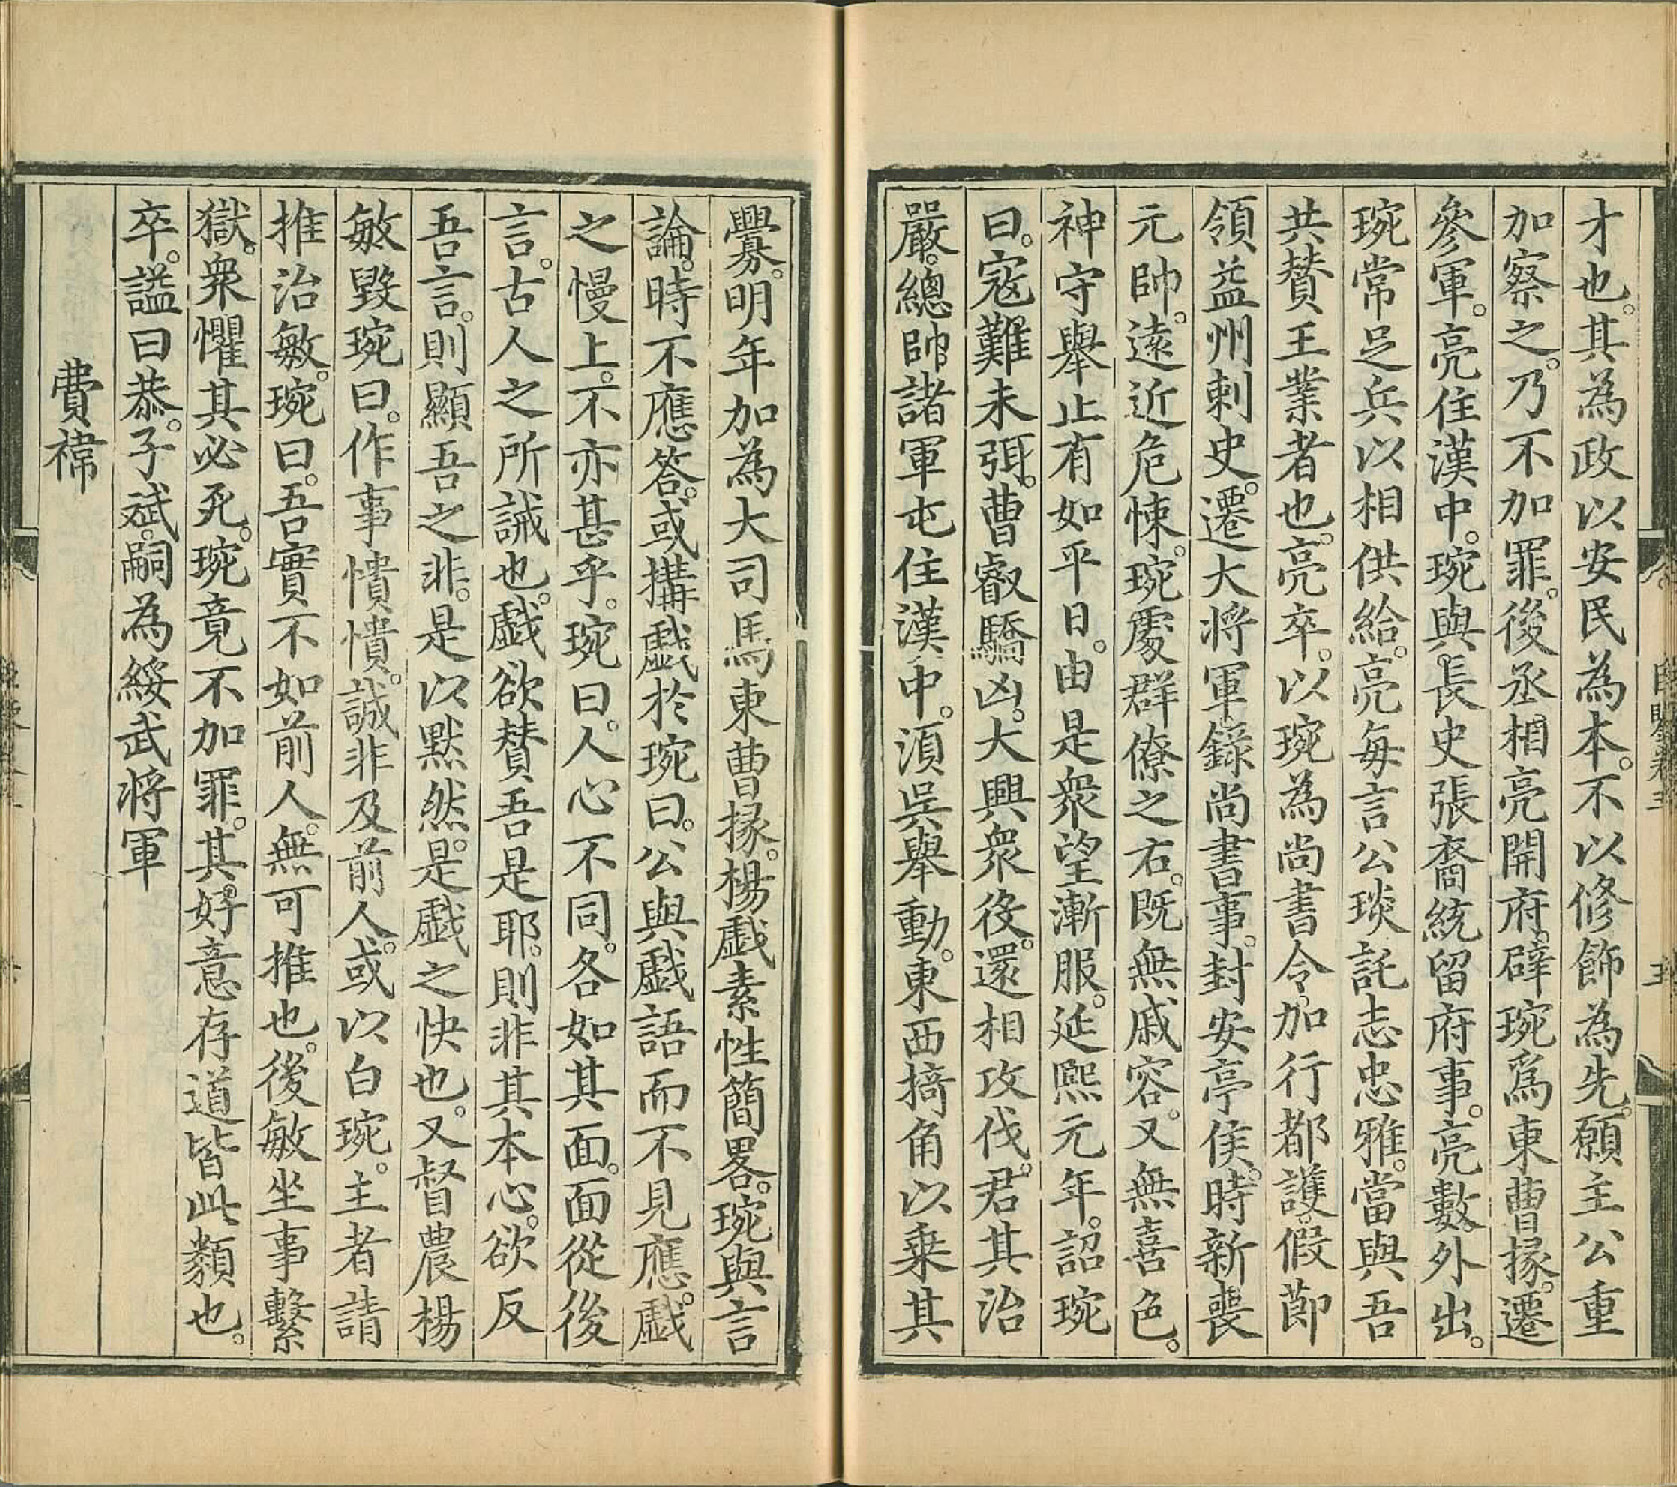 才也。其為政以安民為本。不以修飾為先。願主公重
加察之。乃不加罪。後丞相亮開府。辟琬為東曹掾。遷
參軍。亮住漢中。琬與長史張裔統留府事。亮數外出。
琬常足兵以相供給。亮每言公琰託志忠雅。當與吾
共賛王業者也。亮卒。以琬為尚書令。加行都護。假節
領益州刺史。遷大将軍錄尚書事。封安亭侯。時新喪
元帥。遠近危悚。琬處群僚之右。既無戚容。又無喜色。
神守舉止有如平日。由是衆望漸服。延熈元年。詔琬
曰。寇難未弭。曹叡驕凶。大興衆役。還相攻伐。君其治
嚴。總帥諸軍屯住漢中。湏吳舉動。東西掎角以乗其
舋。明年加為大司馬東曹掾。楊戲素性簡畧。琬與言
論。時不應答。或搆戲於琬曰。公與戲語而不見應。戲
之慢上。不亦甚乎。琬曰。人心不同。各如其面。面從後
言。古人之所誡也。戲欲賛吾是耶。則非其本心。欲反
吾言。則顯吾之非。是以黙然。是戲之快也。又督農楊
敏毀琬曰。作事憒憒。誠非及前人。或以白琬。主者請
推治敏。琬曰。吾實不如前人。無可推也。後敏坐事繫
獄。衆懼其必死。琬竟不加罪。其好意存道皆此類也。
卒。謚曰恭。子斌。嗣為綏武将軍
費禕